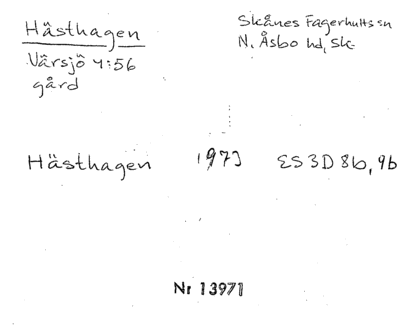 Hästhagen
Skånes Fagerhults sn
N. Åsbo hd, Sk.
Värsjö 4:56
gård
Hästhagen 1973 ES 3D 8b, 9b
Nr 13971